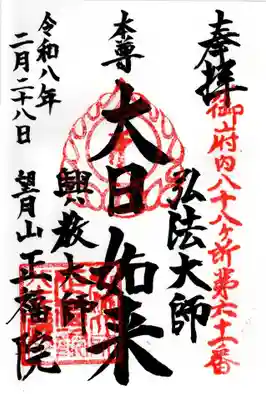 奉拝
御府内八十八ヶ所第六十一番
弘法大師
本尊
大日如来
興教大師
令和八年
二月二十八日
望月山正福院